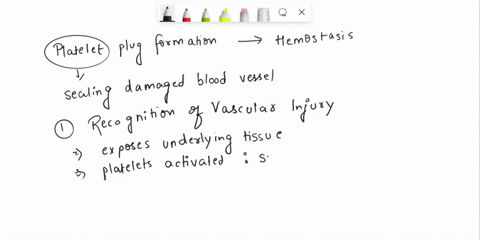 Platelet plug formation → Hemostasis
sealing damaged blood vessel
① Recognition of Vascular Injury
⇒ exposes underlying tissue
⇒ platelets activated : S